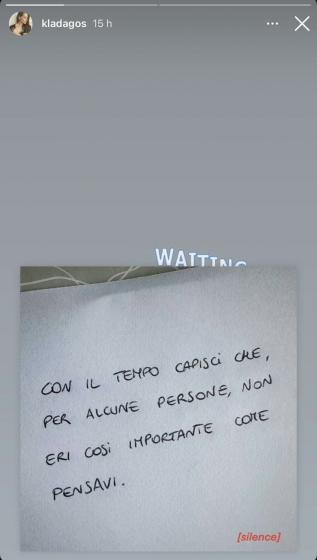 kladagos 15 h
WAITING
CON IL TEMPO CAPISCI CHE,
PER ALCUNE PERSONE, NON
ERI COSÌ IMPORTANTE COME
PENSAVI.
[silence]